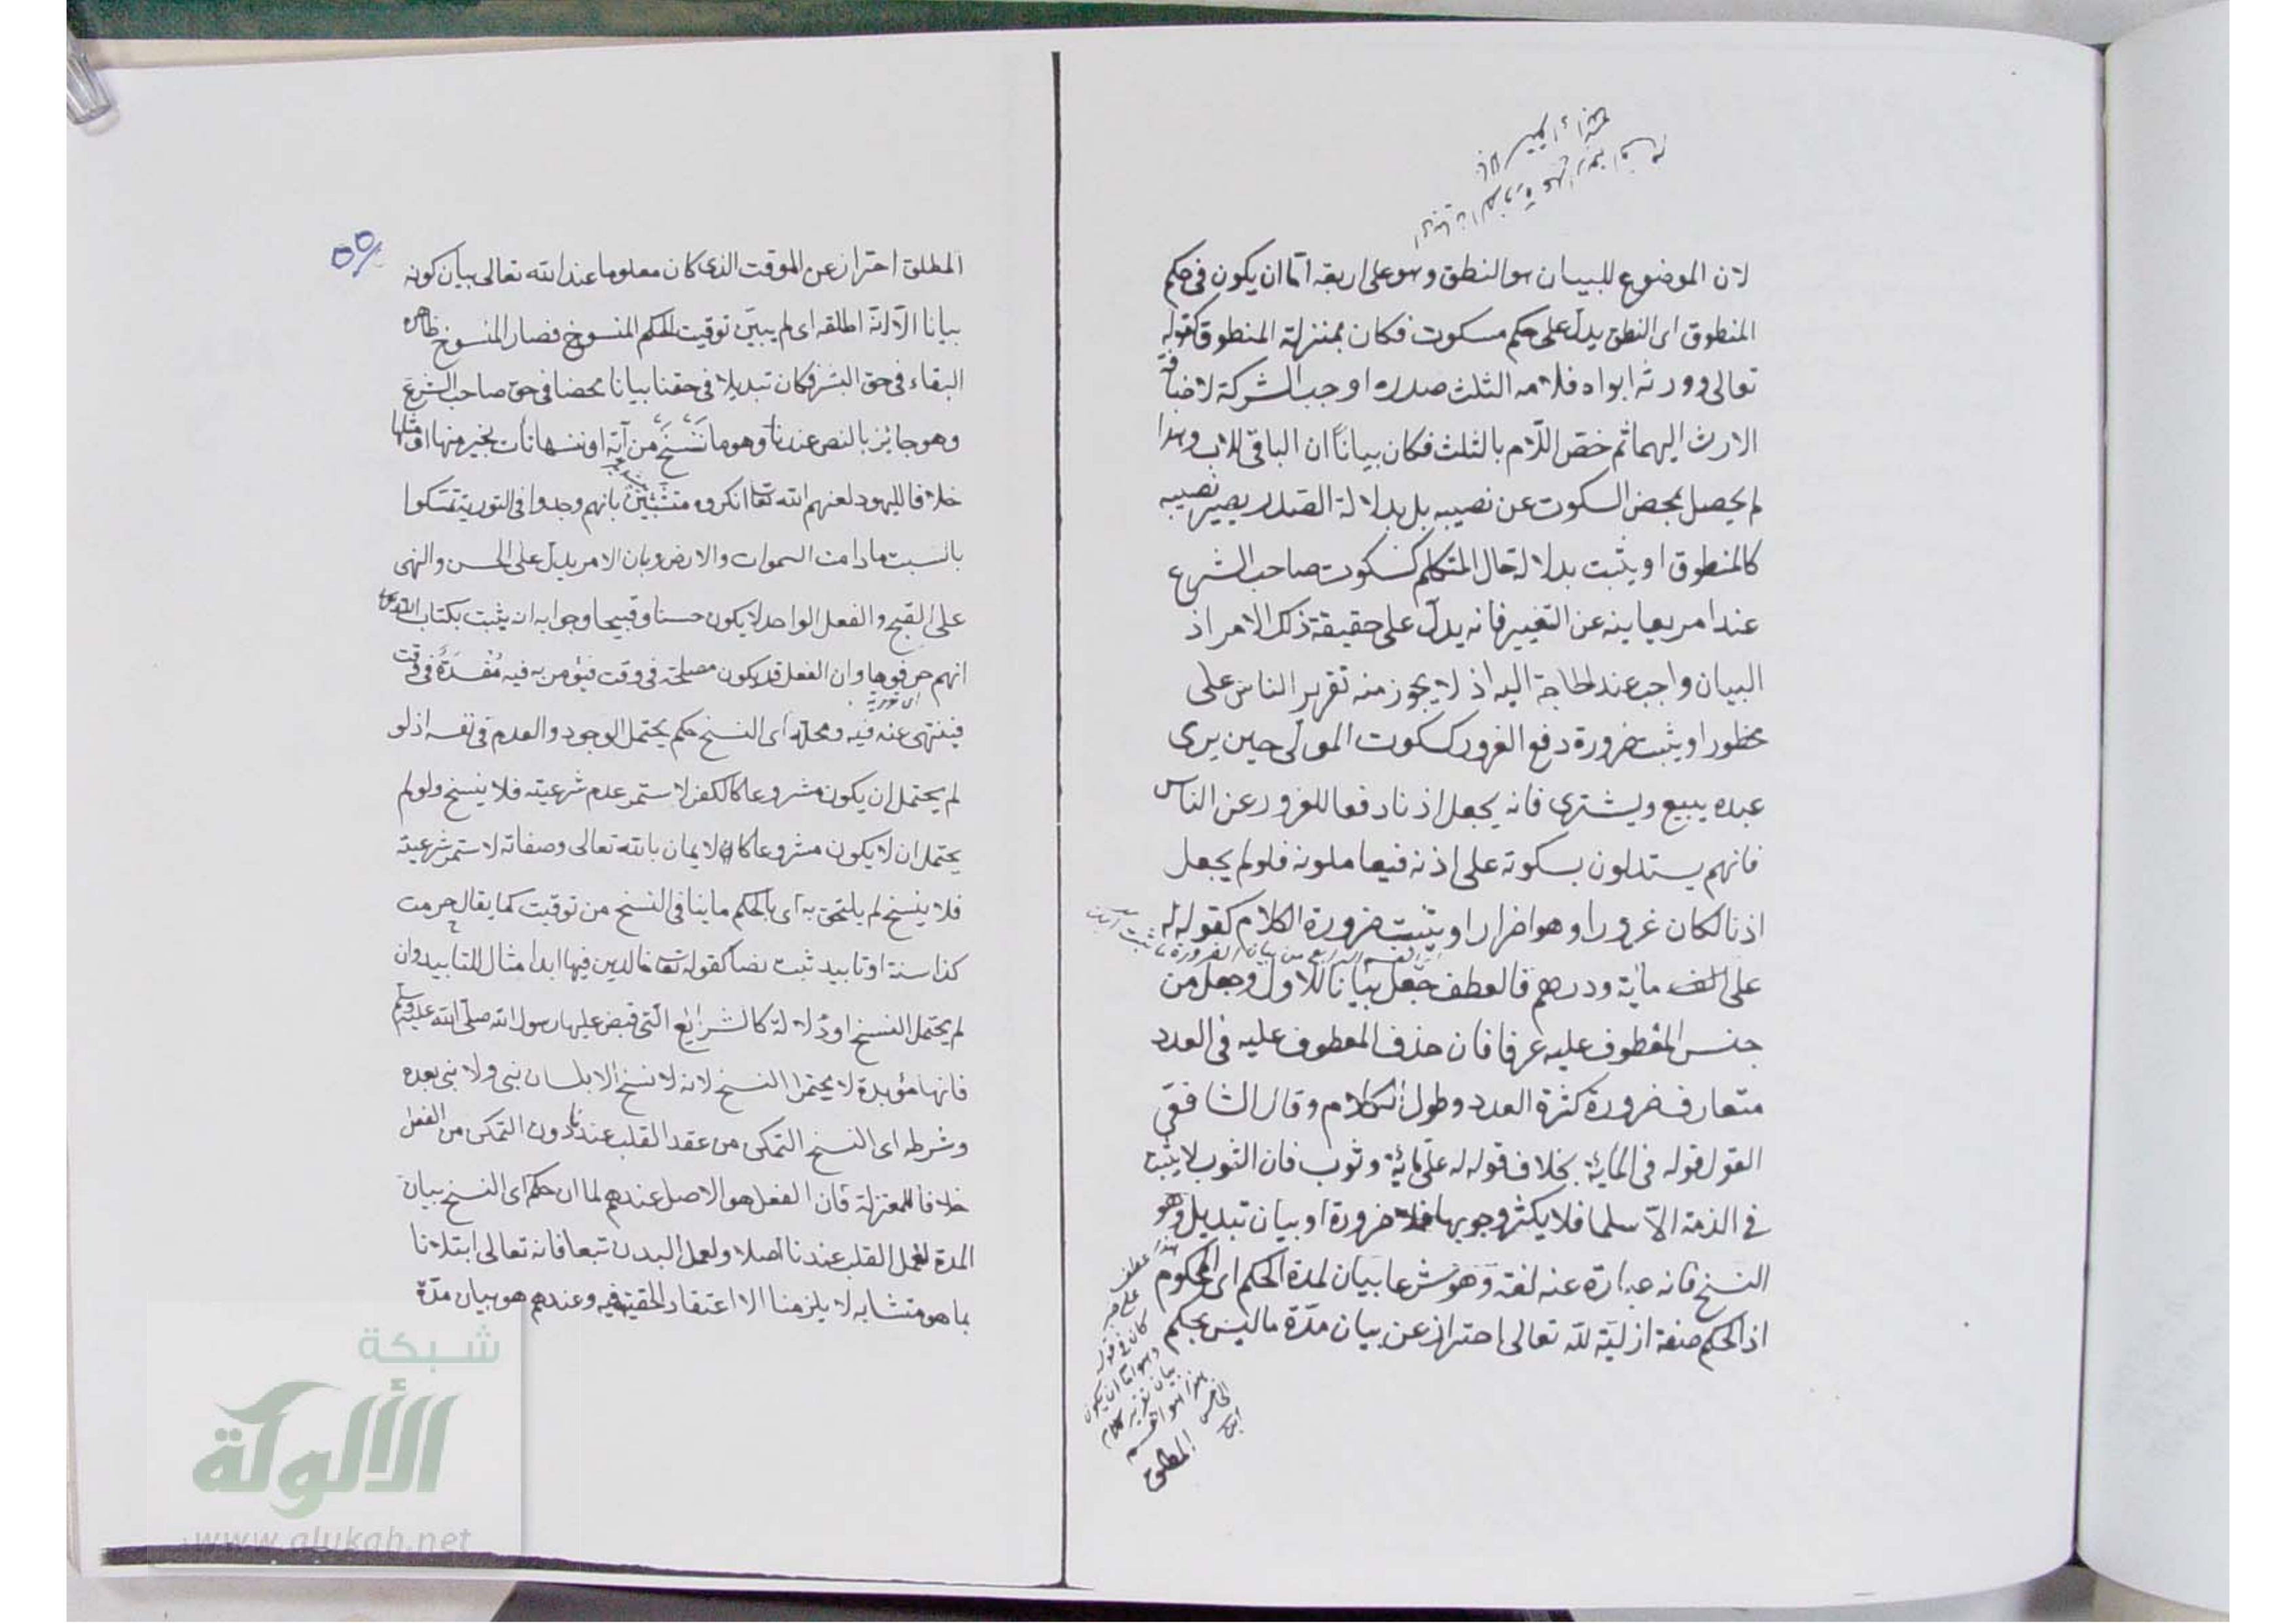 لان الموضوع للبيان هو النطق وهو على اربعة اما ان يكون في حكم
المنطوق اى النطق يدل على حكم مسكوت فكان بمنزلة المنطوق كقوله
تعالى وورثه ابواه فلامه الثلث صدره اوجب الشركة لاضافة
الارث اليهما ثم خص اللام بالثلث فكان بياناً ان الباقى للاب وهذا
لم يحصل بمحض السكوت عن نصيبه بل بدلالة الصدر يصير نصيبه
كالمنطوق او يثبت بدلالة حال المتكلم كسكوت صاحب الشرع
عند امر يعاينه عن التغيير فانه يدل على حقيقة ذلك الامر اذ
البيان واجب عند الحاجة اليه اذ لا يجوز منه تقرير الناس على
محظور او يثبت ضرورة دفع الغرور كسكوت المولى حين يرى
عبده يبيع ويشترى فانه يجعل اذنا دفعا للغرور عن الناس
فانهم يستدلون بسكوته على اذنه فيعاملونه فلو لم يجعل
اذنا لكان غرورا وهو اضرار او يثبت ضرورة الكلام كقوله له
على الف ماية ودرهم فالعطف جعل بيانا للاول وجعل من
جنس المعطوف عليه عرفا فان حذف المعطوف عليه فى العدد
متعارف ضرورة كثرة العدد وطول الكلام وقال الشافعى
القول قوله فى الماية بخلاف قوله له على ماية وثوب فان الثوب لا يثبت
فى الذمة الا سلما فلا يكثر وجوبها فلا ضرورة او بيان تبديل وهو
النسخ فانه عبارة عنه لغة وهو شرعا بيان لمدة الحكم اى المحكوم
اذ الحكم صفة ازلية لله تعالى احتراز عن بيان مدة ما ليس بحكم
هذا عطف
على خبر
كان فى قوله
وهو اما ان يكون
بيان تقرير كلام
هذا هو القسم
الخامس
المطلق
٥٥
المطلق احتراز عن الموقت الذى كان معلوما عند الله تعالى بيان كونه
بيانا الا انه اطلقه اى لم يبين توقيت الحكم المنسوخ فصار المنسوخ ظاهره
البقاء فى حق البشر فكان تبديلا فى حقنا بيانا محضا فى حق صاحب الشرع
وهو جايز بالنص عندنا وهو ما ننسخ من آية او ننسها نأت بخير منها او مثلها
خلافا لليهود لعنهم الله تعا انكروه متشبثين بانهم وجدوا فى التورية تمسكوا
بالسبت ما دامت السموات والارض وبان الامر يدل على الحسن والنهى
على القبح والفعل الواحد لا يكون حسنا وقبيحا وجوابه ان يثبت بكتاب الله تعا
انهم حرفوها وان الفعل قد يكون مصلحة فى وقت فيؤمر به فيه مفسدة فى وقت
اى تورية
فينتهى عنه فيه ومحله اى النسخ حكم يحتمل الوجود والعدم فى نفسه اذ لو
لم يحتمل ان يكون مشروعا كالكفر لاستمر عدم شرعيته فلا ينسخ ولو لم
يحتمل ان لا يكون مشروعا كالايمان بالله تعالى وصفاته لاستمر شرعيته
فلا ينسخ لم يلتحق به اى بالحكم ما ينافى النسخ من توقيت كما يقال حرمت
كذا سنة او تابيد ثبت نصا كقوله تعا خالدين فيها ابدا مثال للتابيد وان
لم يحتمل النسخ او دلالة كالشرايع التى قبض عليها رسول الله صلى الله عليه وسلم
فانها مؤبدة لا يحتمل النسخ لانه لا نسخ الا بلسان نبى ولا نبى بعده
وشرطه اى النسخ التمكن من عقد القلب عندنا دون التمكن من الفعل
خلافا للمعتزلة فان الفعل هو الاصل عندهم لما ان حكم اى النسخ بيان
المدة لعمل القلب عندنا اصلا ولعمل البدن تبعا فانه تعالى ابتلانا
بما هو متشابه لا يلزمنا الا اعتقاد الحقية فيه وعندهم هو بيان مدة
شبكة
الألوكة
www.alukah.net